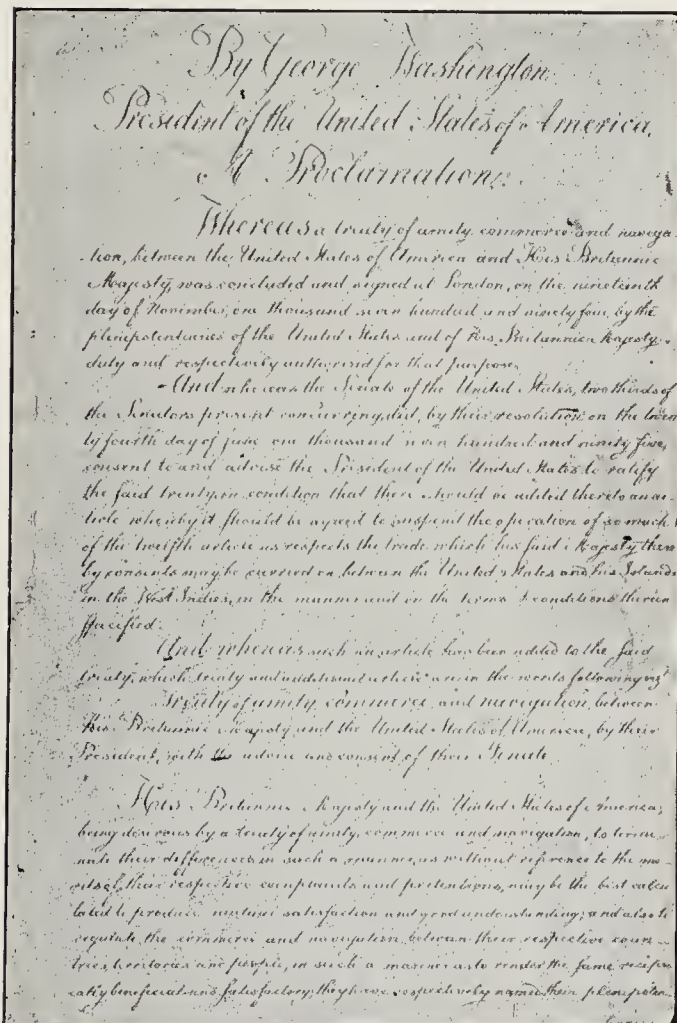 By George Washington
President of the United States of America,
A Proclamation.
Whereas a treaty of amity, commerce and naviga-
tion, between the United States of America and His Britannic
Majesty, was concluded and signed at London, on the nineteenth
day of November, one thousand seven hundred and ninety four, by the
plenipotentiaries of the United States and of His Britannic Majesty,
duly and respectively authorised for that purpose,
And whereas the Senate of the United States, two thirds of
the Senators present concurring, did, by their resolution on the twen-
ty fourth day of june one thousand seven hundred and ninety five,
consent to and advise the President of the United States to ratify
the said treaty, on condition that there should be added thereto an ar-
ticle whereby it should be agreed to suspend the operation of so much
of the twelfth article as respects the trade which his said Majesty there
by consents may be carried on, between the United States and his Islands
in the West Indies, in the manner and on the terms & conditions therein
specified.
And whereas such an article has been added to the said
treaty, which treaty and additional article are in the words following vizt
Treaty of amity, commerce, and navigation, between
His Britannic Majesty and the United States of America, by their
President, with the advice and consent of their Senate
His Britannic Majesty and the United States of America,
being desirous by a treaty of amity, commerce and navigation, to termi-
nate their differences in such a manner, as without reference to the me-
rits of their respective complaints and pretentions, may be the best calcu-
lated to produce mutual satisfaction and good understanding; and also to
regulate the commerce and navigation between their respective coun-
tries, territories and people, in such a manner as to render the same recipro-
cally beneficial and satisfactory; they have respectively named their plenipoten-